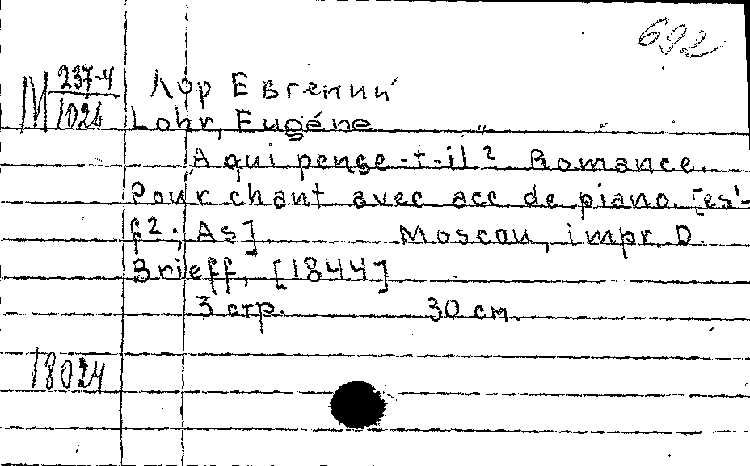 692
M 237-4
1024
Лор Евгений
Lohr, Eugéne
A qui pense-t-il? Romance.
Pour chant avec acc de piano. [es¹-
f²; As] Moscou, impr. D.
Brieff, [1844]
3 стр. 30 см.
18024